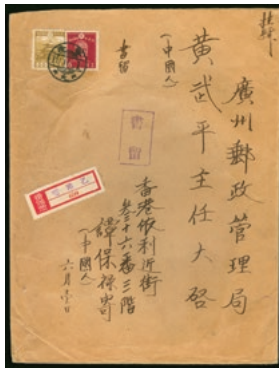 廣州郵政管理局
黃武平主任大啓
（中國人）
書留
書留
香港依利近街
叁十六番三階
譚保祿寄
（中國人）
六月壹日